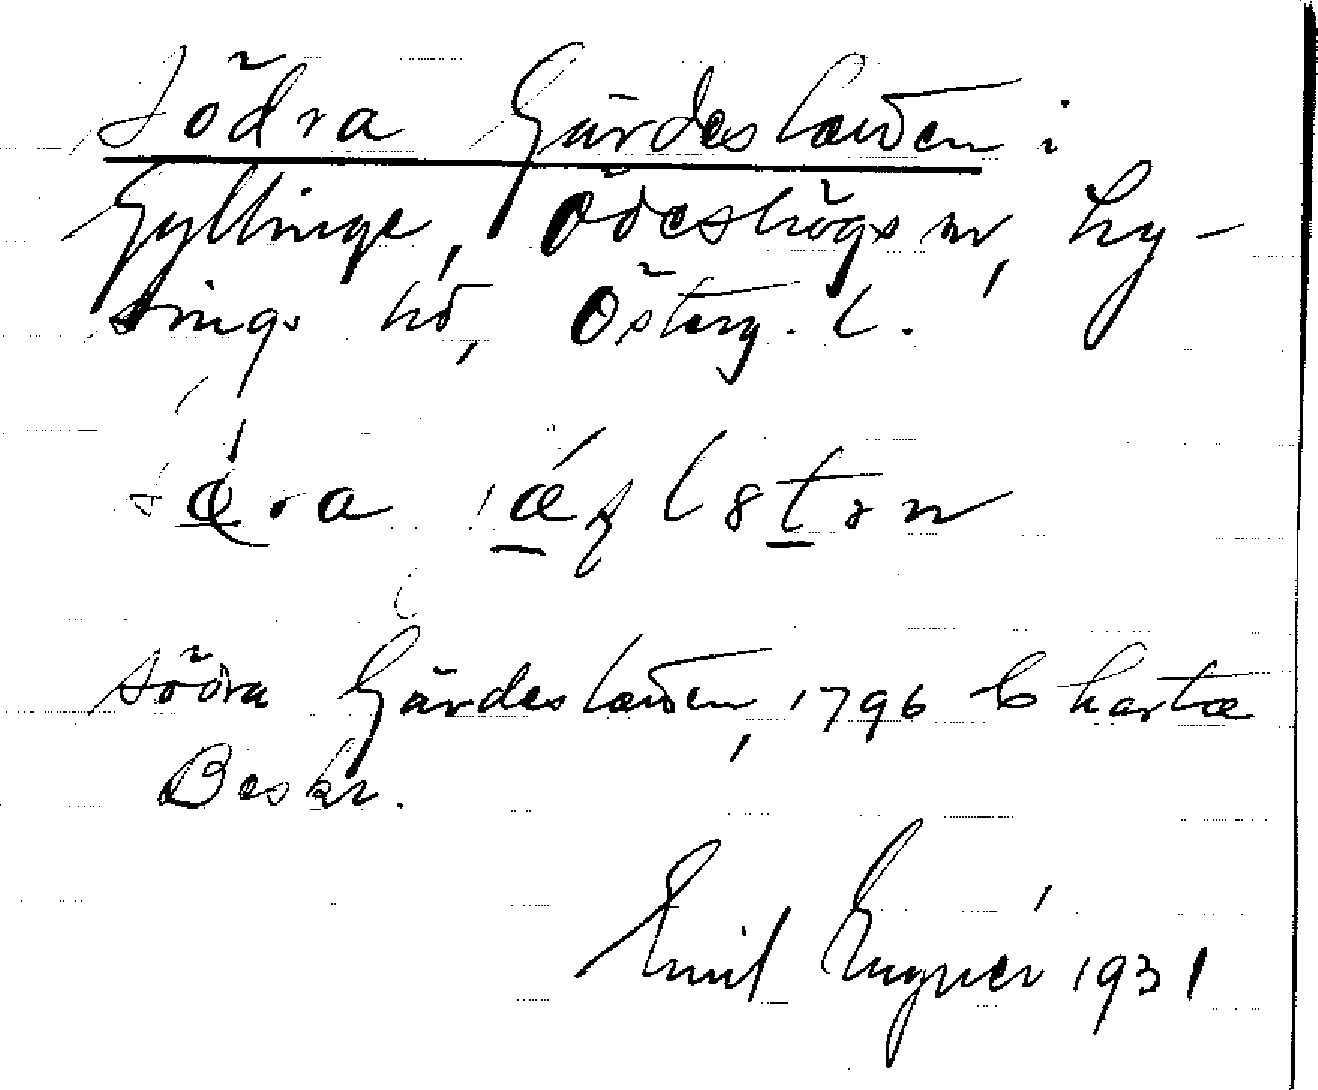 Södra Gärdeslauden i
Gyllinge, Ödeshögs sn, Ly-
sings hd, Österg. l.
södra Gärdeslauden, 1796 Charta
Beskr.
Emil 1931